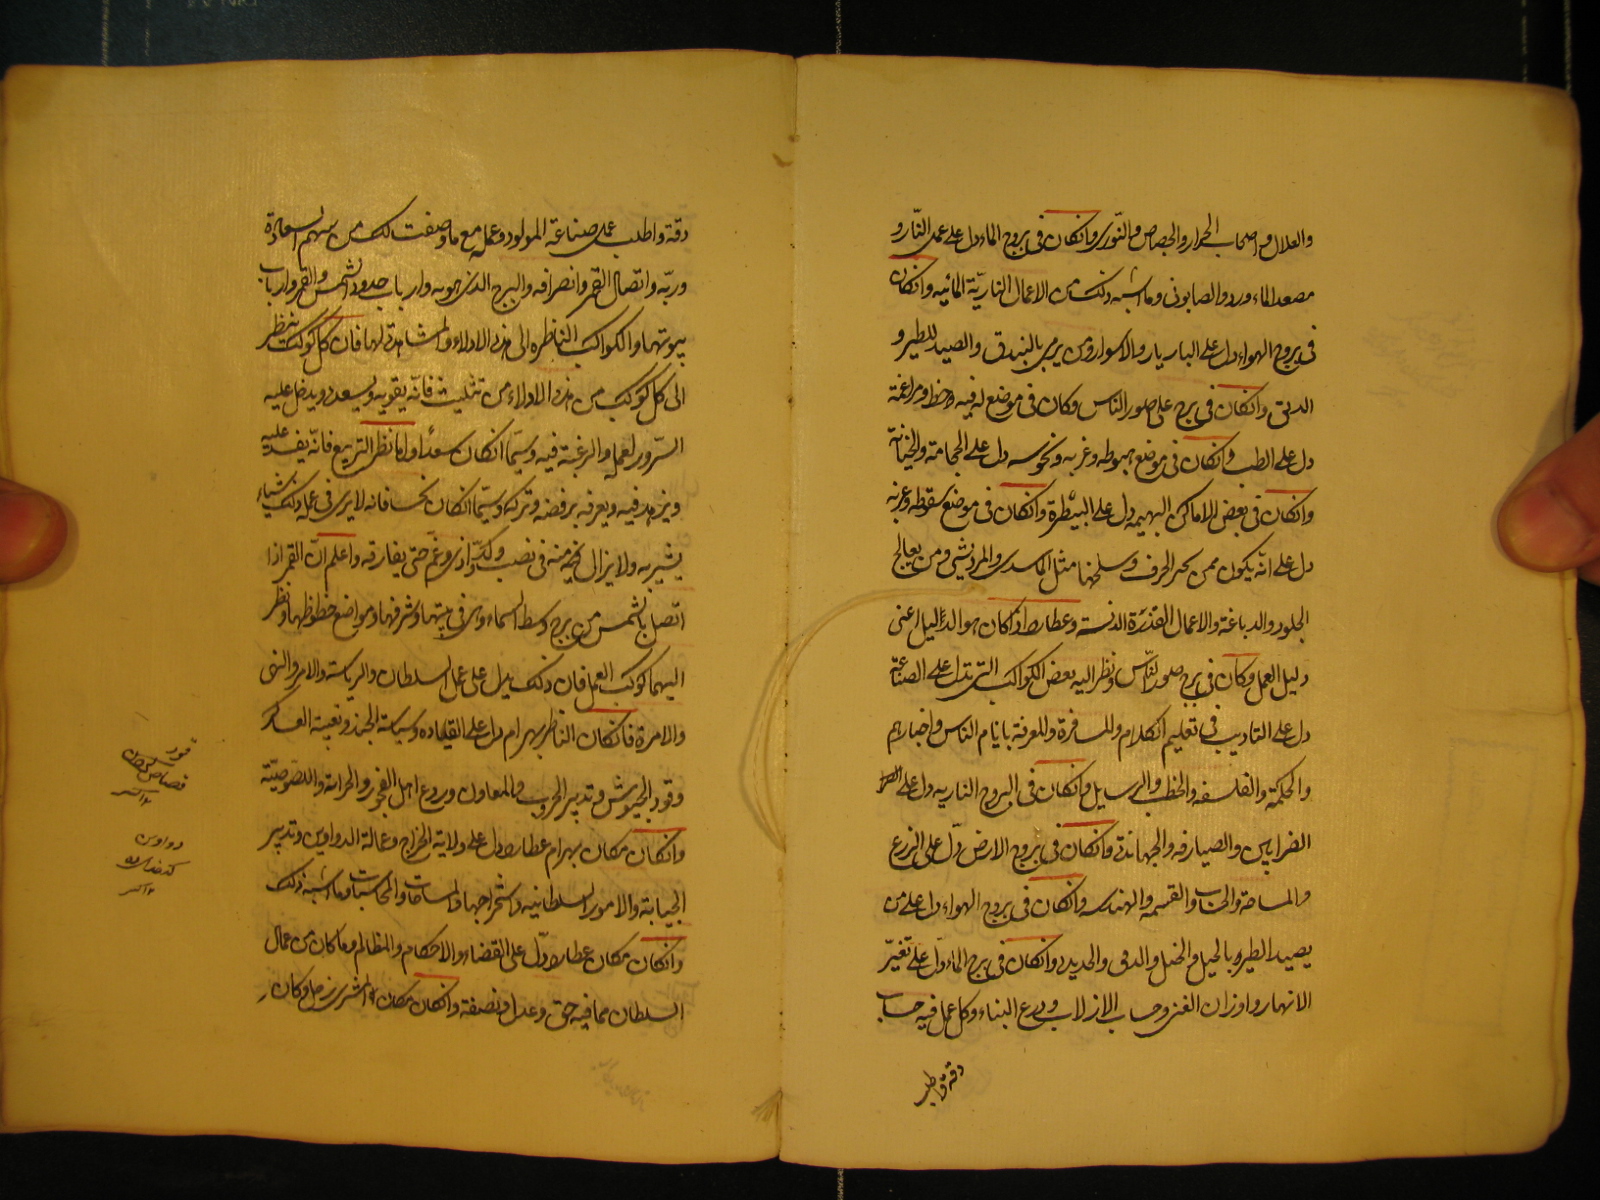 والغلال واصحاب الجرار والجصاص والنورة وان كان فى بروج الماء دل على عمل النار و
مصعد الماء ورد والصابونى وما اشبه ذلك من الاعمال النارية المائيه وان كان
فى بروج الهواء دل على البازيار والاسوار ومن يرمى بالبندق والصيد للطير و
الدبق وان كان فى برج على صور الناس وكان فى موضع له فيه حظ ومزاغمة
دل على الطب وان كان فى موضع هبوطه وغربه ونحوسه دل على الحجامة والختانة
وان كان فى بعض الاماكن البهيمه دل على البيطرة وان كان فى موضع سقوطه وغربه
دل على انه يكون ممن يحمر الحرف وسلخها مثل ومن يعالج
الجلود والدباغة والاعمال القذرة الدنسة وعطارد اذا كان هو الدليل اعنى
دليل العمل وكان فى برج صور الناس ونظر اليه بعض الكواكب التى تدل على الصناعة
دل على التاديب فى تعليم الكلام والمسافرة والمعرفة بايام الناس واخبارهم
والحكمة والفلسفه والخطب والرسايل وان كان فى البروج الناريه دل على
الضرابين والصيارفه والجهابذة وان كان فى بروج الارض دل على الزرع
والمساحة والحساب والقسمه والهندسه وان كان فى بروج الهواء دل على من
يصيد الطير بالحيل والختل والدبق والحديد وان كان فى برج الماء دل على تغير
الانهار واوزان الغنى وحساب الازلاب وذرع البناء وكل عمل فيه حساب
دقة واطلب
دقة واطلب عمل صناعة المولود وعمله مع ما وصفت لك من سهم السعادة
وربه واتصال القمر وانصرافه والبرج الذى هو به وارباب حدود الشمس والقمر وارباب
بيوتهما والكواكب الناظره الى هذه الادلاء والمشاهدة لها فان كل كوكب ينظر
الى كل كوكب من هذه الادلاء من تثليث فانه يقويه ويسعده ويدخل عليه
السرور لعمله والرغبة فيه وسيما ان كان سعدا واما نظر التربيع فانه يفسد عليه
ويزهد فيه ويعرفه برفضه وتركه وسيما ان كان نحسا فانه لا يرى فى عمله ذلك شياء
يشير به ولا يزال لخيه منه فى نصب وكد واذى وغم حتى يفارقه واعلم ان القمر اذا
اتصل بالشمس من برج وسط السماء وهى فى بيتهما وشرفهما ومواضع حظوظهما ونظر
اليهما كوكب العمل فان ذلك يدل على عمل السلطان والرياسة والامر والنهى
والامرة فان كان الناظر بهرام دل على القياده وسياسة الجند ونعبية العسكر
وقود الجيوش وتدبير الحروب والمعاون وردع اهل الفجور والحرابة واللصوصية
وان كان مكان بهرام عطارد دل على ولاية الخراج وعمالة الدواوين وتدبير
الجباية والامور السلطانيه واستخراجها والمساحات والمحاسبات وما اشبه ذلك
وان كان مكان عطارد دل على القضاء والاحكام والمظالم وما كان من عمال
السلطان مما فيه حق وعدل ونصفة وان كان مكان المشترى زحل وكان